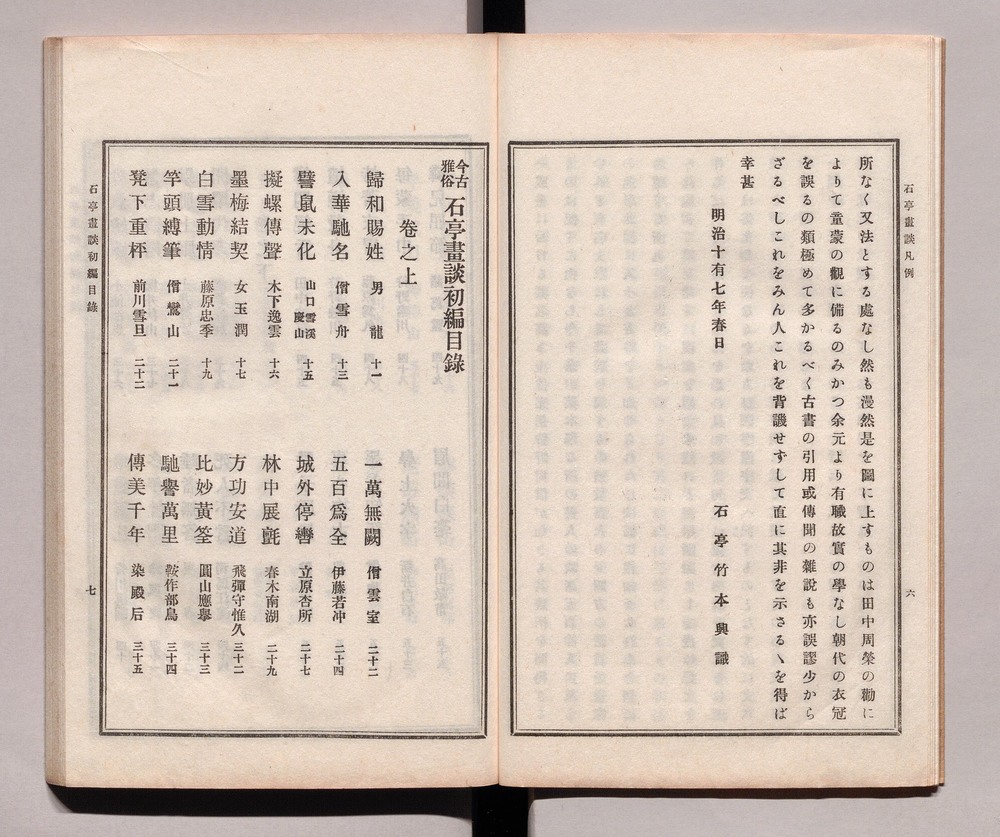 石亭畫談凡例
所なく又法とする處なし然も漫然是を圖に上すものは田中周榮の勸に
よりて童蒙の觀に備るのみかつ余元より有職故實の學なし朝代の衣冠
を誤るの類極めて多かるべく古書の引用或傳聞の雜說も亦誤謬少から
ざるべしこれをみん人これを背譏せずして直に其非を示さるゝを得ば
幸甚
明治十有七年春日
石亭竹本興識
六
今古雅俗 石亭畫談初編目錄
卷之上
歸和賜姓 男龍 十一
一萬無闕 僧雲室 二十二
入華馳名 僧雪舟 十三
五百爲全 伊藤若冲 二十四
譬鼠未化 山口雪溪 慶山 十五
城外停轡 立原杏所 二十七
擬螺傳聲 木下逸雲 十六
林中展氈 春木南湖 二十九
墨梅結契 女玉潤 十七
方功安道 飛彈守惟久 三十二
白雪動情 藤原忠季 十九
比妙黃筌 圓山應擧 三十三
竿頭縛筆 僧鶯山 二十一
馳譽萬里 鞍作部鳥 三十四
凳下重枰 前川雪旦 二十二
傳美千年 染殿后 三十五
石亭畫談初編目錄
七